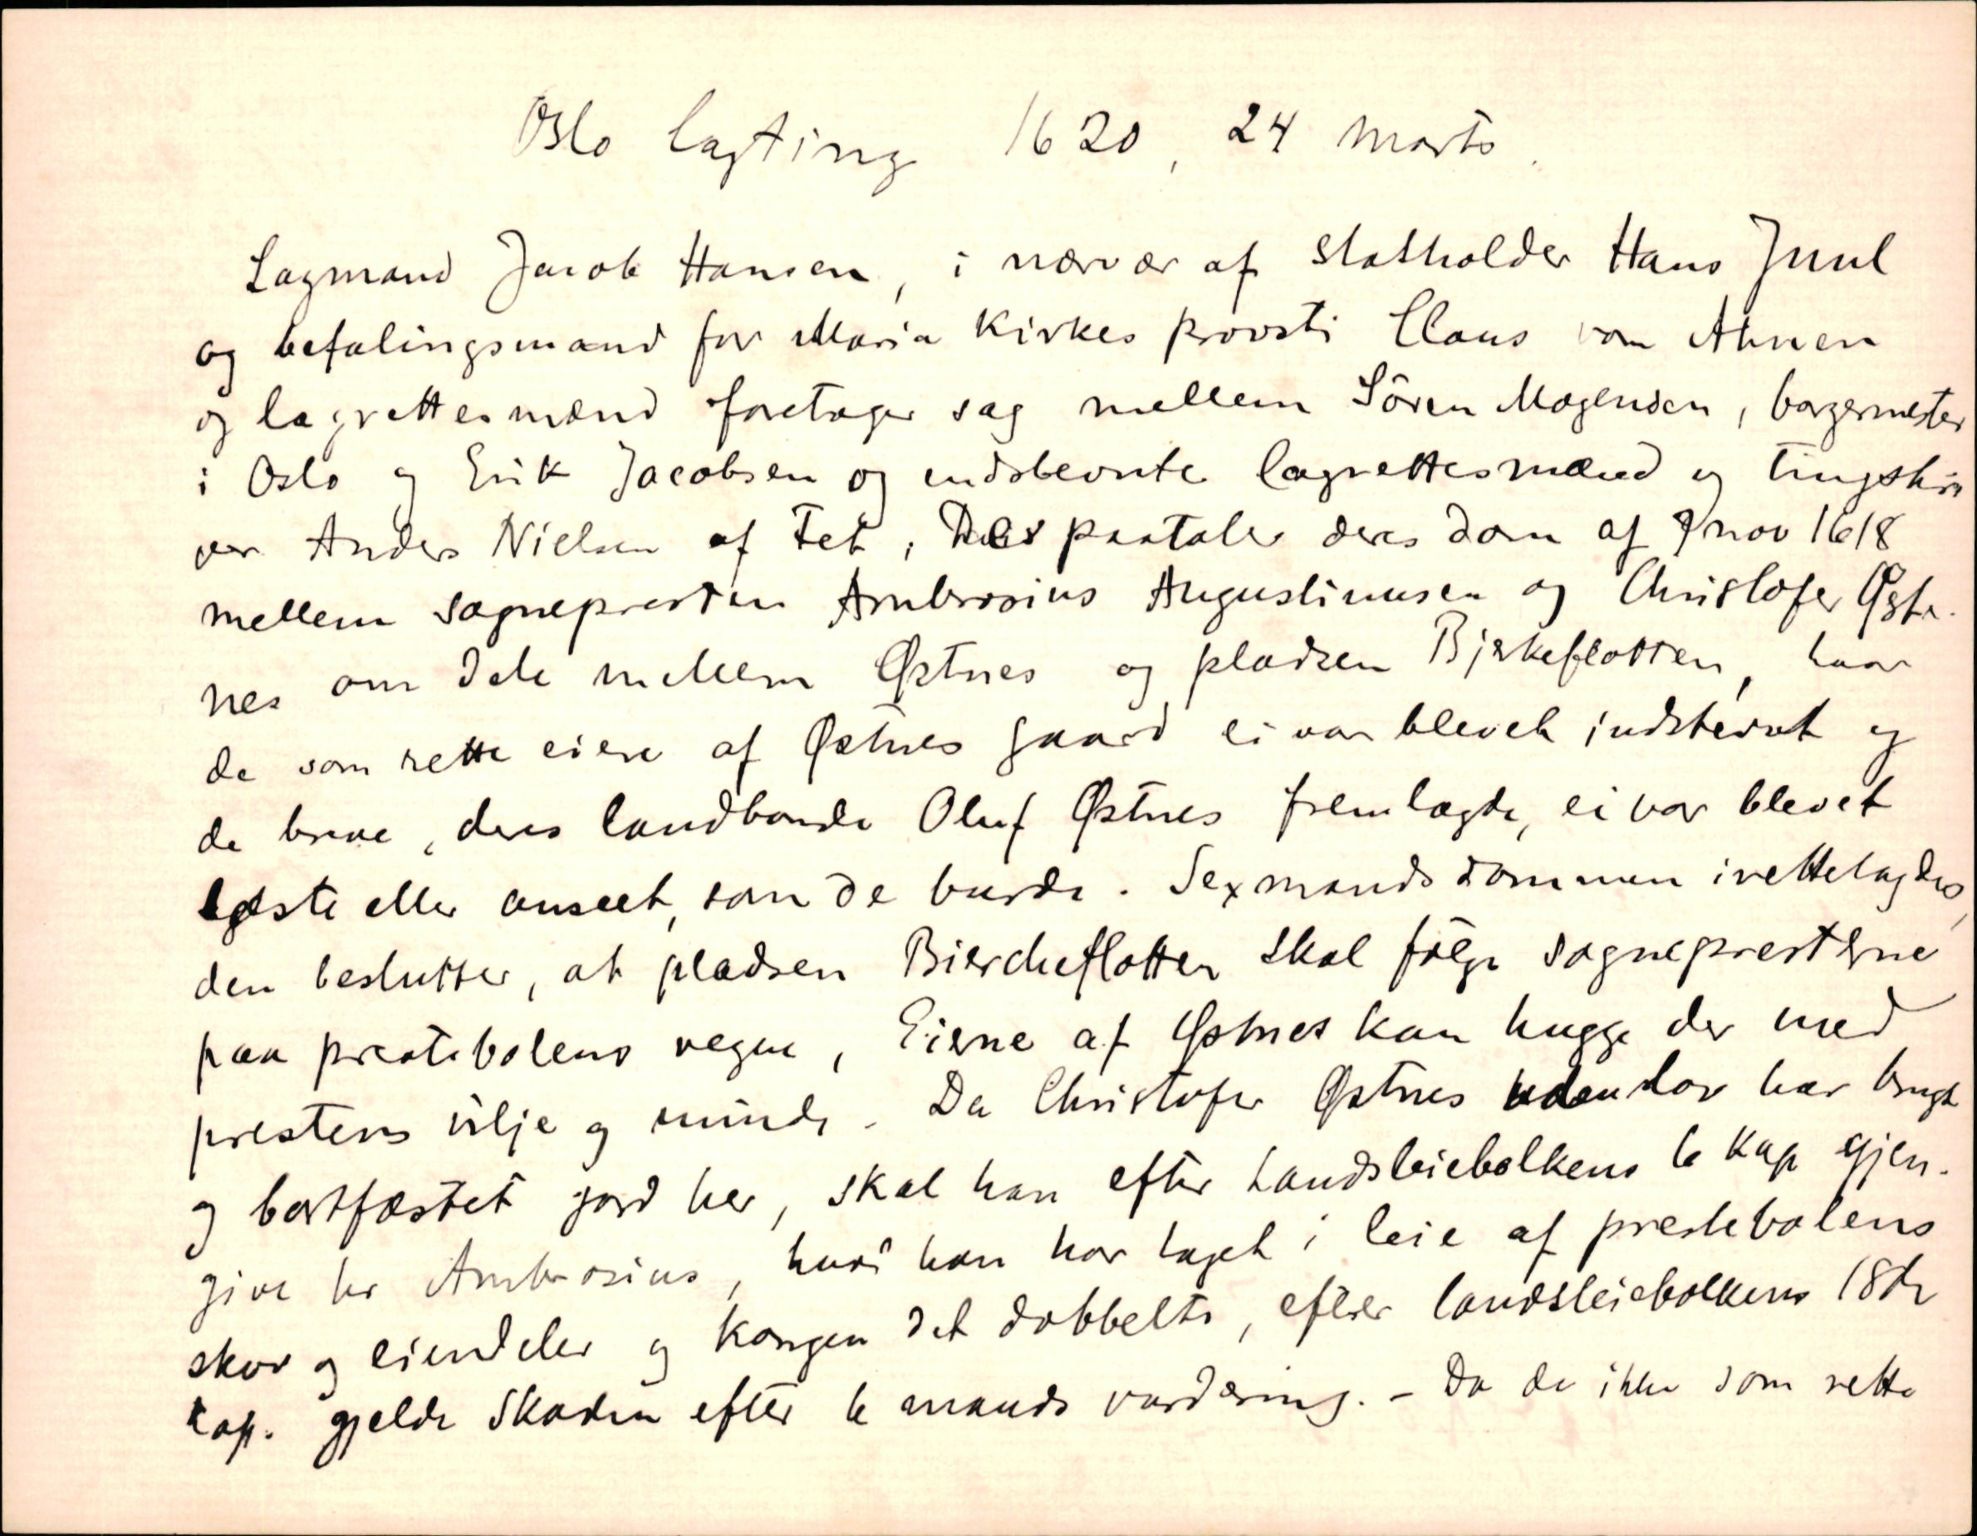 Oslo lagting 1620, 24 marts.
Lagmand Jacob Hansen, i nærvær af statholder Hans Juul
og befalingsmand for Maria Kirkes provsti Claus von Ahnen
og lagrettesmænd foretager sag mellem Sören Mogensen, borgermester
i Oslo og Erik Jacobsen og endsbevnte lagrettesmænd og tingskri
ver Anders Nielsen af Fet, paataler deres dom af 9 nov 1618
mellem sognepresten Ambrosius Augustinusen og Christofer Øst-
nes om dele mellem Østnes og pladsen Bjerkeflotten, hvor
de som rette eiere af Østnes gaard ei var blevet indstevnt og
de breve, deres landbonde Oluf Østnes fremlagde, ei var blevet
læste eller anseet, som de burde. Sexmandsdommen irettelagdes,
den beslutter, at pladsen Biercheflotten skal følge sogneprestene
paa prestebolens vegne, Eierne af Østnes kan hugge der med
prestens vilje og minde. Da Christofer Østnes uden lov har brugt
og bortfæstet jord her, skal han efter Landsleiebolkens 6 Kap gjen-
give hr Ambrosius, hvad han har taget i leie af prestebolens
skov og eiendeler og kongen det dobbelte, efter landsleiebolkens 18de
kap. gjelde skaden efter 6 mands vurdering. - Da de ikke som rette